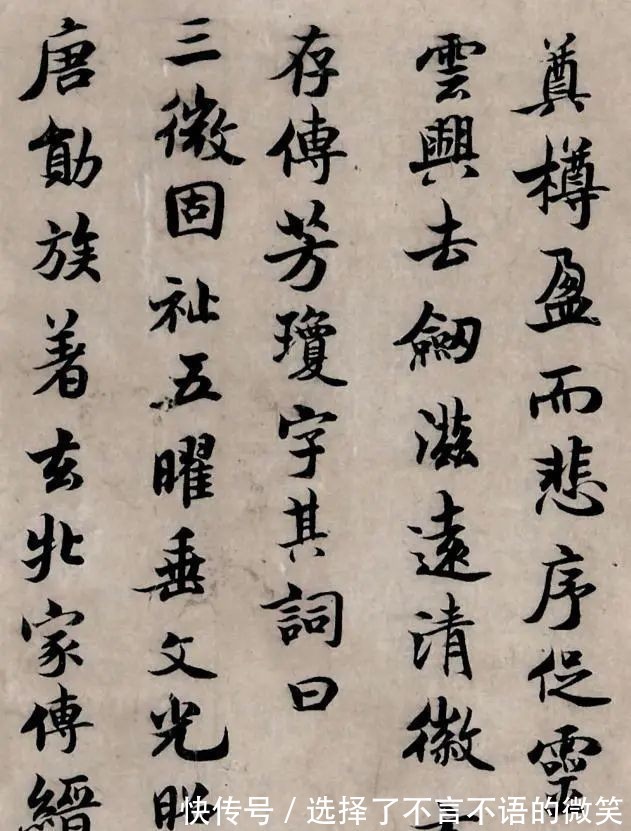 奠樽盈而悲序促靈
雲興去劔滋遠清徽
存傳芳瓊字其詞曰
三微固祉五曜垂文光
唐勛族著玄牝家傳縉
快传号/选择了不言不语的微笑